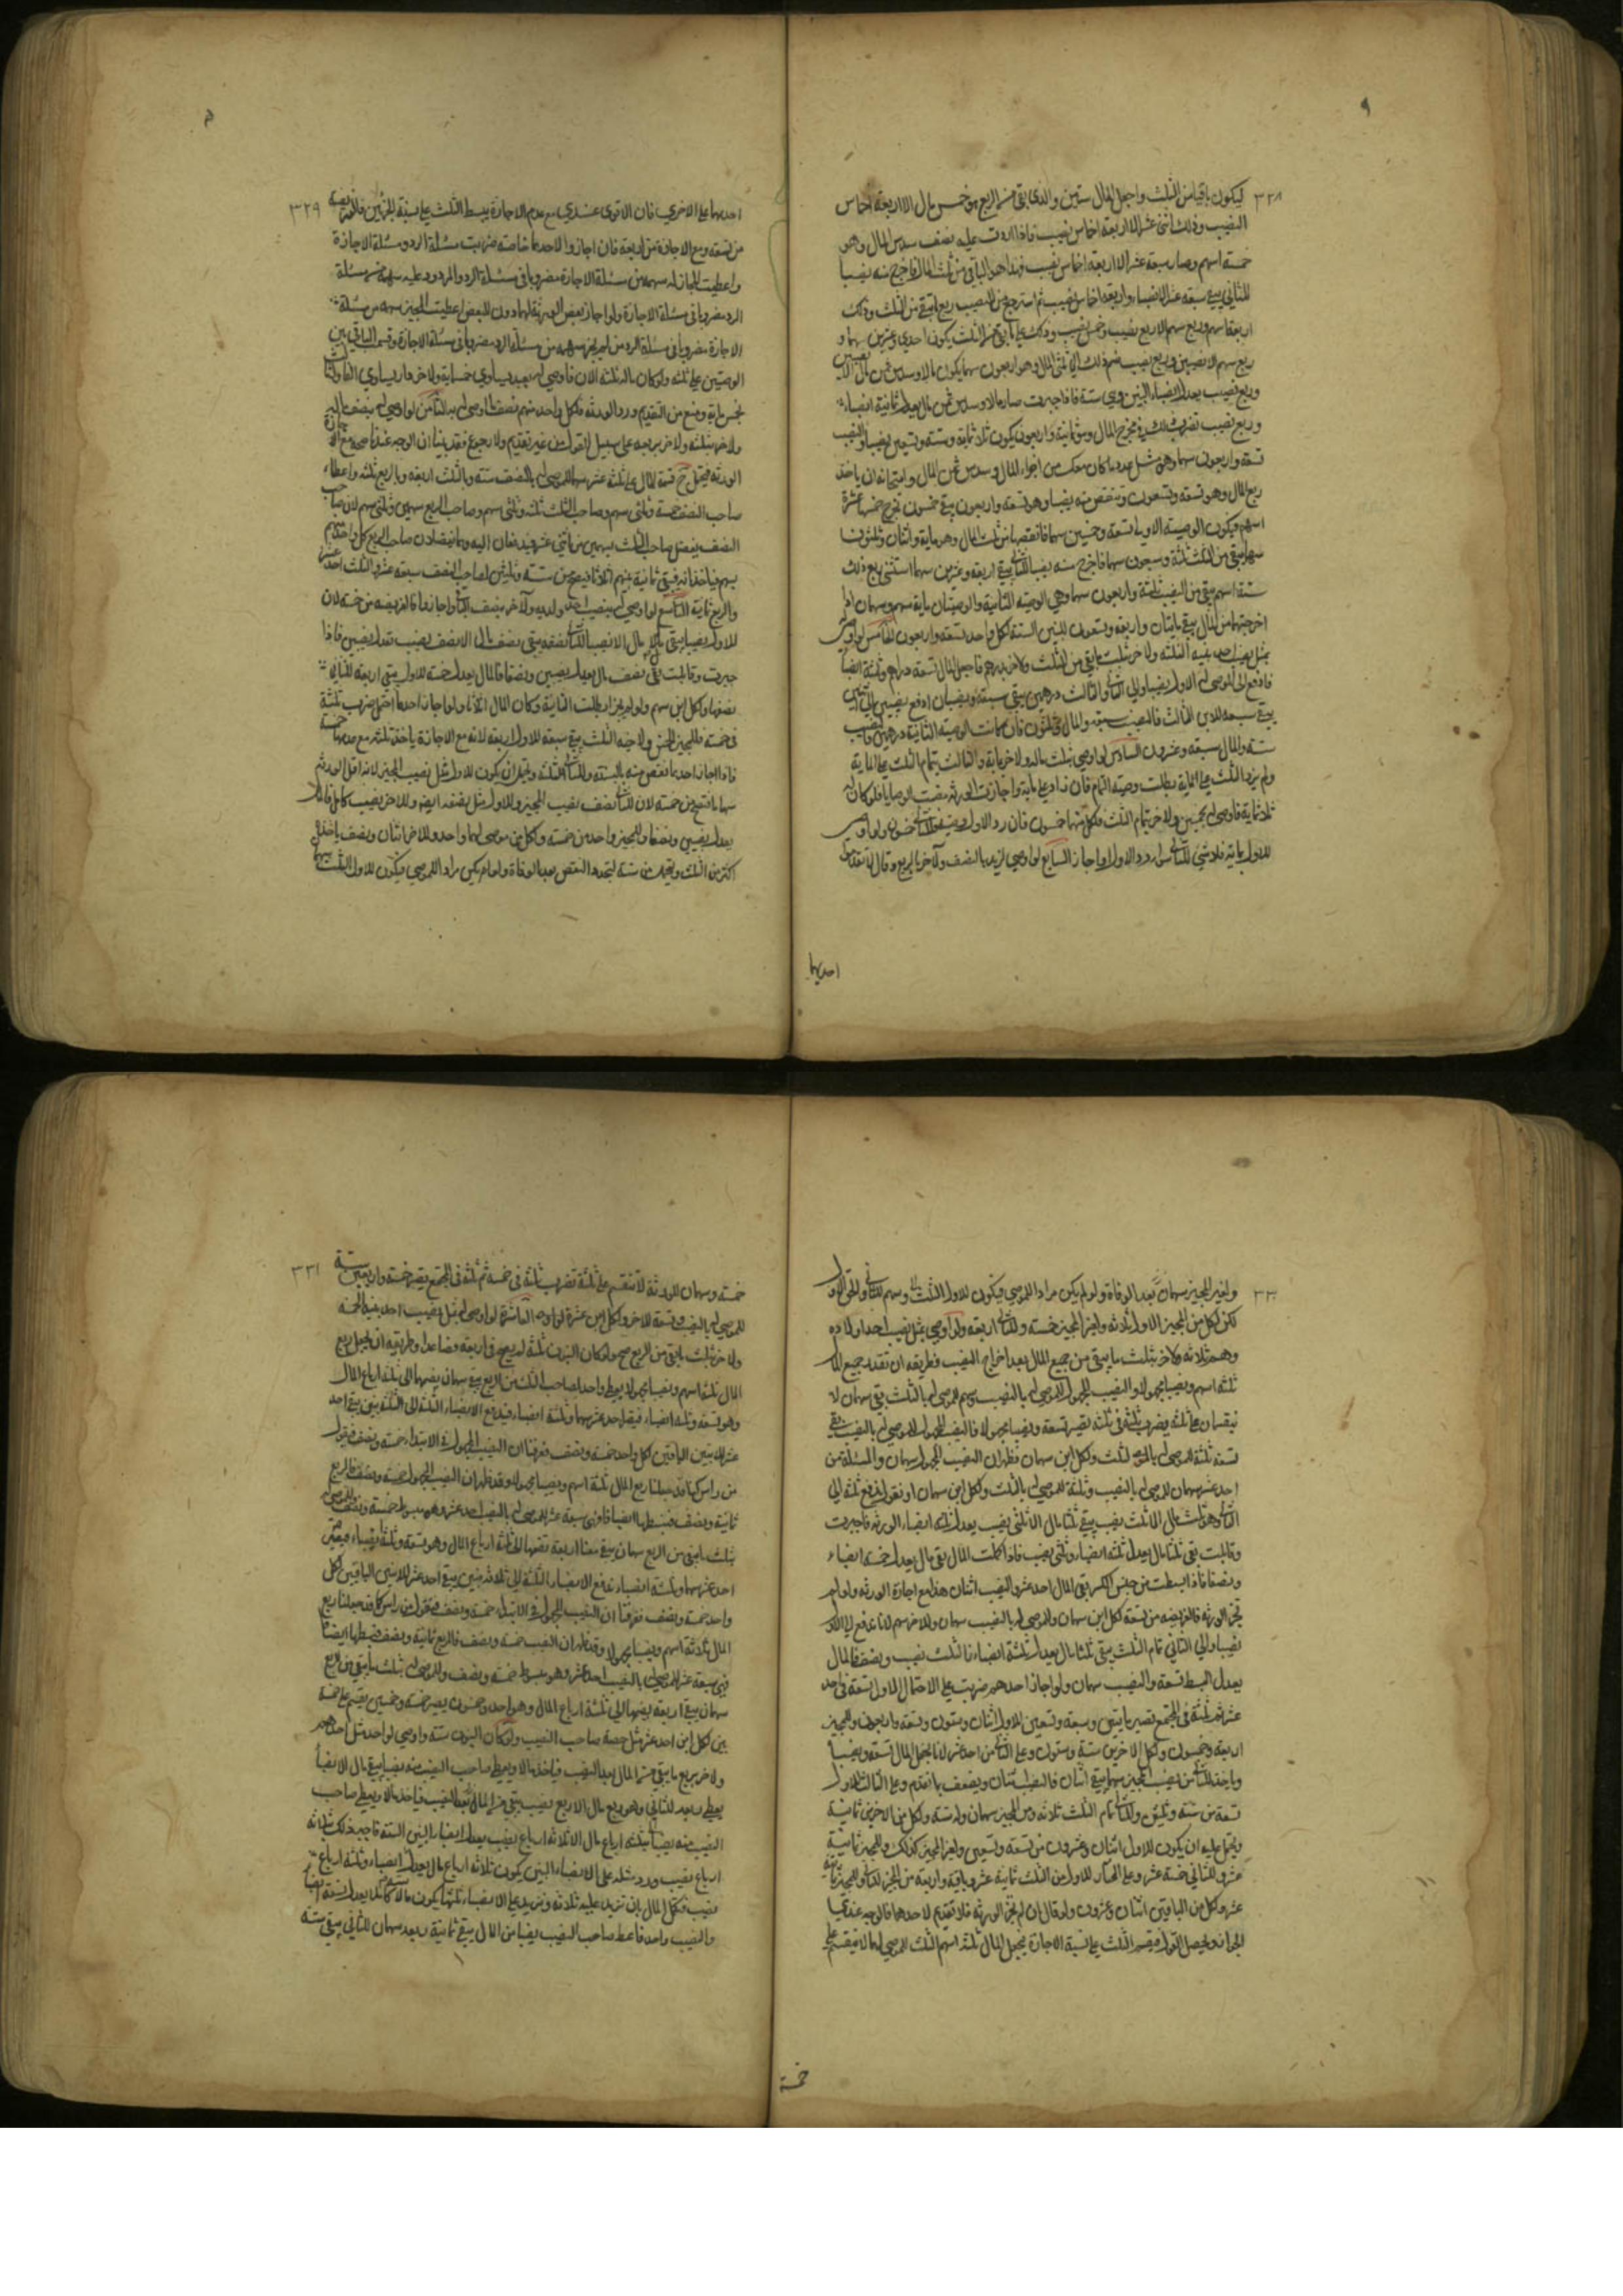 ٣٢٨
ليكون باقيا من الثلث واجعل المال ستين والذي بقي من الربع هو خمس مال الا اربعة اخماس
النصيب وذلك اثنى عشر الا اربعة اخماس نصيب فاذا زدت عليه نصف سدس المال وهو
خمسة اسهم وصار سبعة عشر الا اربعة اخماس نصيب فهذا هو الباقي من ثلث المال فاخرج منه نصيبا
للثاني يبقى سبعة عشر الا نصيبا واربعة اخماس نصيب ثم استرجع من النصيب ربع ما بقي من الثلث وذلك
اربعة اسهم وربع سهم الا ربع نصيب وخمس نصيب وذلك على ما بقي من الثلث يكون احدى وعشرين سهما و
ربع سهم الا نصيبين وربع نصيب ضم ذلك الى ثلثى المال وهو اربعون سهما يكون مالا وسدس ثمن مال الا نصيبين
وربع نصيب يعدل انصباء البنين وهي ستة فاذا جبرت صار مالا وسدس ثمن مال يعدل ثمانية انصباء
وربع نصيب تضرب ذلك في مخرج المال وهو ثمانية واربعون يكون ثلاثمائة وستة وتسعين نصيبا والنصيب
تسعة واربعون سهما وهو مثل عدد ما كان معك من اجزاء المال وسدس ثمن المال وامتحانه ان ياخذ
ربع المال وهو تسعة وتسعون وتنقص منه نصيبا وهو تسعة واربعون يبقى خمسون تخرج خمسها عشرة
اسهم فيكون الوصية الاولى تسعة وخمسين سهما فانقصها من ثلث المال وهو ماية واثنان وثلثون
سهما يبقى من الثلث ثلثة وسبعون سهما فاخرج منه نصيبا للثاني يبقى اربعة وعشرين سهما استثنى ربع ذلك
ستة اسهم يبقى من النصيب ثلثة واربعون سهما وهي الوصية الثانية والوصيتان ماية سهم وسهمان اذا
اخرجتهما من المال يبقى مايتان واربعة وتسعون للبنين الستة لكل واحد تسعة واربعون الخامس لو اوصى
بمثل نصيب احد بنيه الثلثة ولاخر بثلث ما بقي من الثلث ولاخر بدرهم فاجعل المال تسعة دراهم وثلثة انصباء
فادفع الى الموصى له الاول نصيبا والى الثاني والثالث درهمين يبقى سبعة ونصيبان ادفع نصيبين الى ابنين
يبقى سبعة للابن الثالث فالنصيب سبعة والمال ثلثون فان كانت الوصية الثانية درهمين فالنصيب
ستة والمال سبعة وعشرون السادس لو اوصى بثلث ماله ولاخر بماية والثالث بتمام الثلث على الماية
ولم يزد الثلث على الماية بطلت وصية التمام فان زاد على ماية واجازت الورثة مضت الوصايا فلو كان له
ثلاثماية فاوصى له بخمسين ولاخر بتمام الثلث فلكل منهما خمسون فان رد الاول وصيته فللثاني خمسون ولو اوصى
للاول بماية فلا شي للثاني سواء رد الاول او اجاز السابع لو اوصى لزيد بالنصف ولاخر بالربع وقال لا تقدموا
احديهما
٣٢٩
احديهما على الاخرى فان الاقوى عندي مع عدم الاجازة يبسط الثلث على نسبة الجزئين فالفريضة
من تسعة ومع الاجازة من اربعة فان اجازوا لاحدهما خاصة ضربت مسئلة الرد ومسئلة الاجازة
واعطيت المجاز له سهمه من مسئلة الاجازة مضروبا في مسئلة الرد والمردود عليه سهمه من مسئلة
الرد مضروبا في مسئلة الاجازة ولو اجاز بعض الورثة لهما دون البعض اعطيت المجيز سهمه من مسئلة
الاجازة مضروبا في مسئلة الرد ومن لم يجز سهمه من مسئلة الرد مضروبا في مسئلة الاجازة وقسم الباقي بين
الوصيتين على ثلثة ولو كان ماله ثلثة الاف فاوصى له بعبد يساوي خمسماية ولاخر دار يساوي الفا ولثالث
بخمسماية ومنع من التقديم ورد الورثة فلكل واحد منهم نصف ما اوصى له به الثامن لو اوصى له بنصف ماله
ولاخر بثلثه ولاخر بربعه على سبيل العول من غير تقديم ولا رجوع فقد بينا ان الوجه عندنا صحته مع اجازة
الورثة فيحتمل ح قسمة المال على ثلثة عشر سهما للموصى له بالنصف ستة والثلث اربعة وبالربع ثلثة واعطاء
صاحب النصف خمسة وثلثى سهم وصاحب الثلث ثلثة وثلثى سهم وصاحب الربع سهمين وثلثى سهم لان صاحب
النصف يفضل صاحب الثلث بسهمين من اثنى عشر فيدفعان اليه وهما يفضلان صاحب الربع كل واحد منهم
بسهم فياخذانه فيبقى ثمانية بينهم اثلاثا فيصح من ستة وثلثين لصاحب النصف سبعة عشر والثلث احد عشر
والربع ثمانية التاسع لو اوصى له بنصيب احد ولديه ولاخر بنصف الباقي واجازا فالفريضة من خمسة لان
للاول نصيبا يبقى مال الا نصيبا للثاني نصفه يبقى نصف مال الا نصف نصيب يعدل نصيبين فاذا
جبرت وقابلت بقي نصف مال يعدل نصيبين ونصفا فالمال يعدل خمسة للاول يبقى اربعة للثاني
نصفها ولكل ابن سهم ولو لم يجيزا بطلت الثانية وكان المال اثلاثا ولو اجاز احدهما احتمل ضرب ثلثة
في خمسة فللمجيز الخمس ولاخيه الثلث يبقى سبعة للاول اربعة لانه مع الاجازة ياخذ ثلثة مع عدمها خمسة
فاذا اجاز احدهما نقص منه بالنسبة وللثاني الثلثة ويحتمل ان يكون للاول مثل نصيب المجيز لانه اقل الورثة
سهما فتصح من خمسة لان للثاني نصف نصيب المجيز وللاول مثل نصفه ايضا وللاخر نصيب كامل فالمال
يعدل نصيبين ونصفا وللمجيز واحد من خمسة ولكل من موصى لهما واحد وللاخر اثنان ونصف ياخذ
اكثر من الثلث ويحتمل من ستة لتجدد النقص بعد الوفاة ولو لم يكن مراد الموصي فيكون للاول الثلث سهمان
٣٣٠
ولغير المجيز سهمان بعد الوفاة ولو لم يكن مراد الموصي فيكون للاول الثلث وسهم للثاني
لكن لكل من المجيز الاول ثلاثة ولغير المجيز خمسة وللثاني اربعة ولو اوصى بمثل نصيب احد اولاده
وهم ثلاثة ولاخر بثلث ما يبقى من جميع المال بعد اخراج النصيب فطريقه ان تقدر جميع المال
ثلثة اسهم ونصيبا مجهولا والنصيب المجهول للموصى له بالنصيب وسهم للموصى له بالثلث بقي سهمان لا
ينقسمان على ثلثة يضرب ثلثة في ثلثة تصير تسعة ونصيبا مجهولا فالنصيب المجهول للموصى له بالنصيب يبقى
تسعة ثلثة للموصى له بالثلث ولكل ابن سهمان فظهر ان النصيب المجهول سهمان والمسئلة من
احد عشر سهمان للموصى له بالنصيب وثلثة للموصى له بالثلث ولكل ابن سهمان او نقول ندفع ثلثه الى
الثاني وهو ثلث مال الا ثلث نصيب يبقى ثلثا مال الا ثلثى نصيب يعدل ثلثة انصباء الورثة فاجبرت
وقابلت بقي ثلثا مال يعدل ثلثة انصباء وثلثى نصيب فاذا اكملت المال بقي مال يعدل خمسة انصباء
ونصفا فاذا بسطت من جنس الكسر بقي المال احد عشر والنصيب اثنان هذا مع اجازة الورثة ولو لم
تجز الورثة فالفريضة من تسعة لكل ابن سهمان وللموصى له بالنصيب سهمان وللاخر سهم لانا ندفع الى الاول
نصيبا والى الثاني تمام الثلث يبقى ثلثا مال يعدل ثلثة انصباء فالثلث نصيب ونصف فالمال
يعدل البسط تسعة والنصيب سهمان ولو اجاز احدهم ضربت على الاحتمال الاول تسعة في احد
عشر ثم ثلثة في المجتمع تصير مايتين وسبعة وتسعين للاول اثنان وستون وتسعة واربعون وللمجيز
اربعة وخمسون ولكل الاخرين ستة وستون وعلى الثاني من احد عشر لانا نجعل المال تسعة ونصيبا
وياخذ الثاني من نصيب المجيز سهما يبقى اثنان فالنصيب اثنان ونصف ما تقدم وعلى الثالث للاول
تسعة من ستة وثلثين وللثاني تمام الثلث ثلاثة ومن المجيز سهمان وله ستة ولكل من الاخرين ثمانية
ويحتمل عليه ان يكون للاول اثنان وعشرون من تسعة وتسعين ولغير المجيز كذلك وللمجيز ثمانية
عشر وللثاني خمسة عشر وعلى المختار للاول من الثلث ثمانية عشر وباقيه واربعة من المجيز للثاني وللمجيز ثمانية
عشر ولكل من الباقيين اثنان وعشرون ولو قال ان لم تجز الورثة فلا تقديم لاحدهما فالوجه عندي
الجواز ويحصل العول فيقسم الثلث على نسبة الاجازة يجعل المال ثلثة اسهم الثلث للموصى لهما لا ينقسم على
خمسة
٣٣١
خمسة وسهمان للورثة لا تنقسم على ثلثة تضرب ثلثة في خمسة ثم ثلثة في المجتمع يصير خمسة واربعين ستة
للموصى له بالنصيب وتسعة للاخر ولكل ابن عشرة العاشرة لو اوصى له بمثل نصيب احد بنيه الخمسة
ولاخر بثلث ما بقي من الربع صح ولو كان البنون ثلثة لم يصح في اربعة فصاعدا وطريقه ان نجعل ربع
المال ثلثة اسهم ونصيبا مجهولا يعطى واحدا صاحب الثلث من الربع يبقى سهمان يضمهما الى ثلثة ارباع المال
وهو تسعة وثلثة انصباء فيصير احد عشر سهما وثلثة انصباء فيدفع الانصباء الثلثة الى الثلثة بنين يبقى احد
عشر للابنين الباقيين لكل واحد خمسة ونصف فعرفنا ان النصيب المجهول في الابتداء خمسة ونصف فنقول
من راس كنا قد جعلنا ربع المال ثلثة اسهم ونصيبا مجهولا وقد ظهر ان النصيب المجهول خمسة ونصف فالربع
ثمانية ونصف فنبسطها انصافا فهي سبعة عشر للموصى له بالنصيب احد عشر وهو مبسوط خمسة ونصف وللموصى له
بثلث ما يبقى من الربع سهمان يبقى معنا اربعة نضمها الى ثلثة ارباع المال وهو تسعة وثلثة انصباء فيصير
احد عشر سهما وثلثة انصباء ندفع الانصباء الثلثة الى ثلاثة بنين يبقى احد عشر للابنين الباقيين لكل
واحد خمسة ونصف فعرفنا ان النصيب المجهول في الابتداء خمسة ونصف فنقول من راس كنا قد جعلنا ربع
المال ثلاثة اسهم ونصيبا مجهولا وقد ظهر ان النصيب خمسة ونصف فالربع ثمانية ونصف فنبسطها ايضا
فهي سبعة عشر للموصى له بالنصيب احد عشر وهو مبسوط خمسة ونصف وللموصى له بثلث ما يبقى من الربع
سهمان يبقى اربعة يضمها الى ثلثة ارباع المال وهو واحد وخمسون يصير خمسة وخمسين يقسم على خمسة
بنين لكل ابن احد عشر مثل حصة صاحب النصيب ولو كان البنون ستة واوصى لواحد مثل احدهم
ولاخر بربع ما يبقى من المال بعد النصيب فياخذ مالا ويعطي صاحب النصيب منه نصيبا يبقى مال الا نصيبا
يعطى ربعه للثاني وهو ربع مال الا ربع نصيب يبقى من المال بعد النصيب فياخذ مالا ويعطي صاحب
النصيب منه نصيبا ثلثة ارباع مال الا ثلاثة ارباع نصيب يعدل انصباء البنين الستة فاجبر ذلك بثلاثة
ارباع نصيب وزد مثله على الانصباء البنين يكون ثلاثة ارباع مال يعدل انصباء وثلثة ارباع
نصيب فكمل المال بان تزيد عليه ثلاثة وتزيد على الانصباء ثلثها يكون مالا كاملا يعدل تسعة انصباء
والنصيب واحد فاعط صاحب النصيب نصيبا من المال يبقى ثمانية وبعد سهمان للثاني يبقى ستة